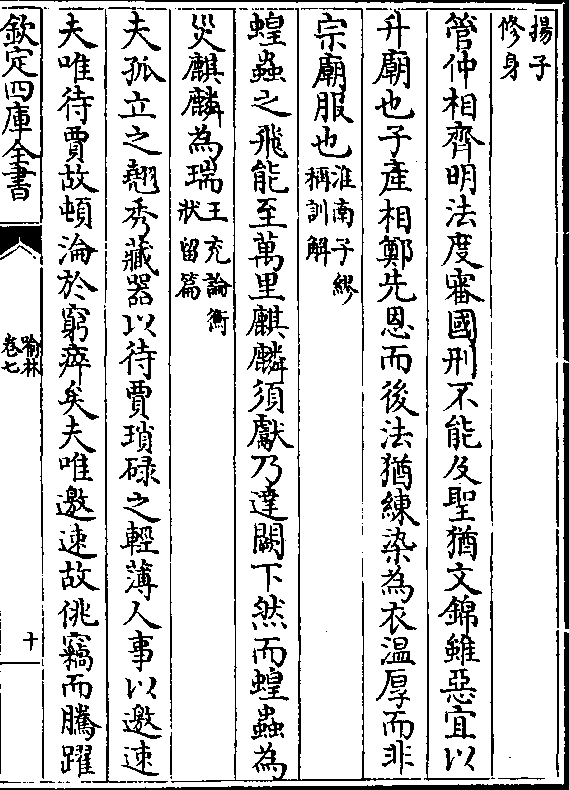 揚子
修身
管仲相齊明法度審國刑不能及聖猶文錦雖惡宜以
升廟也子產相鄭先恩而後法猶練染為衣温厚而非
宗廟服也淮南子繆
稱訓解
蝗蟲之飛能至萬里麒麟須獻乃達闕下然而蝗蟲為
災麒麟為瑞王充論衡
狀留篇
夫孤立之翹秀藏器以待賈瑣碌之輕薄人事以邀速
夫唯待賈故頓淪於窮瘁矣夫唯邀速故佻竊而騰躍
欽定四庫全書
喻林
卷七
十